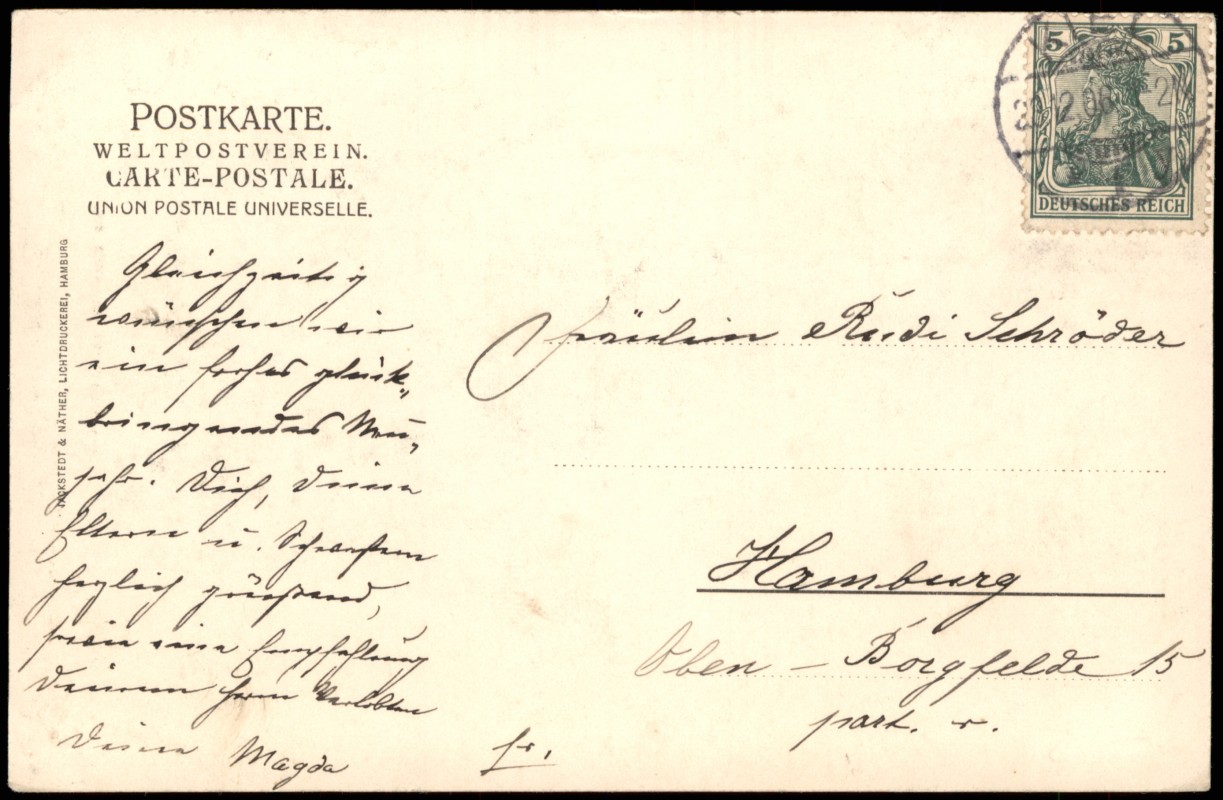 POSTKARTE.
WELTPOSTVEREIN.
CARTE-POSTALE.
UNION POSTALE UNIVERSELLE.
KNACKSTEDT & NÄTHER, LICHTDRUCKEREI, HAMBURG
5 5
DEUTSCHES REICH
Gleichzeitig
wünschen wir
ein frohes glück-
bringendes Neu-
jahr. Dich, Deine
Eltern u. Schwestern
herzlich grüßend,
sowie eine Empfehlung
Deinem Herrn Verlobten
Deine Magda
Fräulein Rudi Schröder
Hamburg
Oben – Borgfelde 15
part. r.
fr.